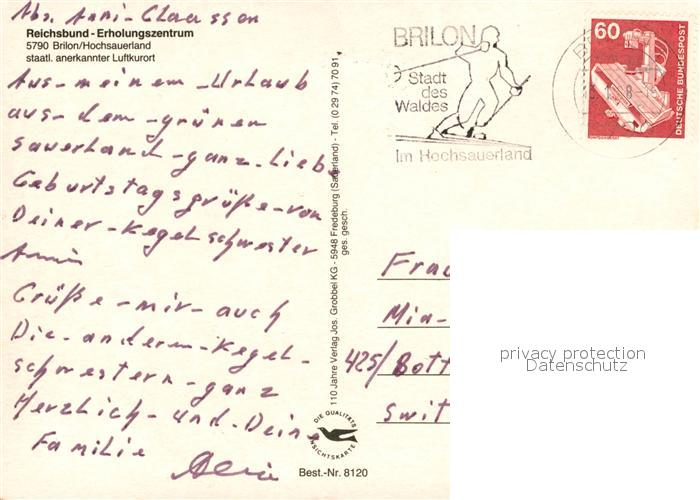 Abs. Anni-Claassen
Reichsbund - Erholungszentrum
5790 Brilon/Hochsauerland
staatl. anerkannter Luftkurort
Aus-meinem-Urlaub
aus-dem-grünen
Sauerland-ganz-lieb
Geburtstagsgrüße-von
Deiner-Kegelschwester
Anni
Grüße-mir-auch
Die-anderen-Kegel-
schwestern-ganz
Herzlich-und-Deine
Familie
110 Jahre Verlag Jos. Grobbel KG - 5948 Fredeburg (Sauerland) - Tel. (0 29 74) 70 91
ges. gesch.
DIE QUALITÄTS
ANSICHTSKARTE
Best.-Nr. 8120
BRILON
Stadt
des
Waldes
Im Hochsauerland
60
DEUTSCHE BUNDESPOST
Frau
Mia-
425/Bott
Swit
privacy protection
Datenschutz